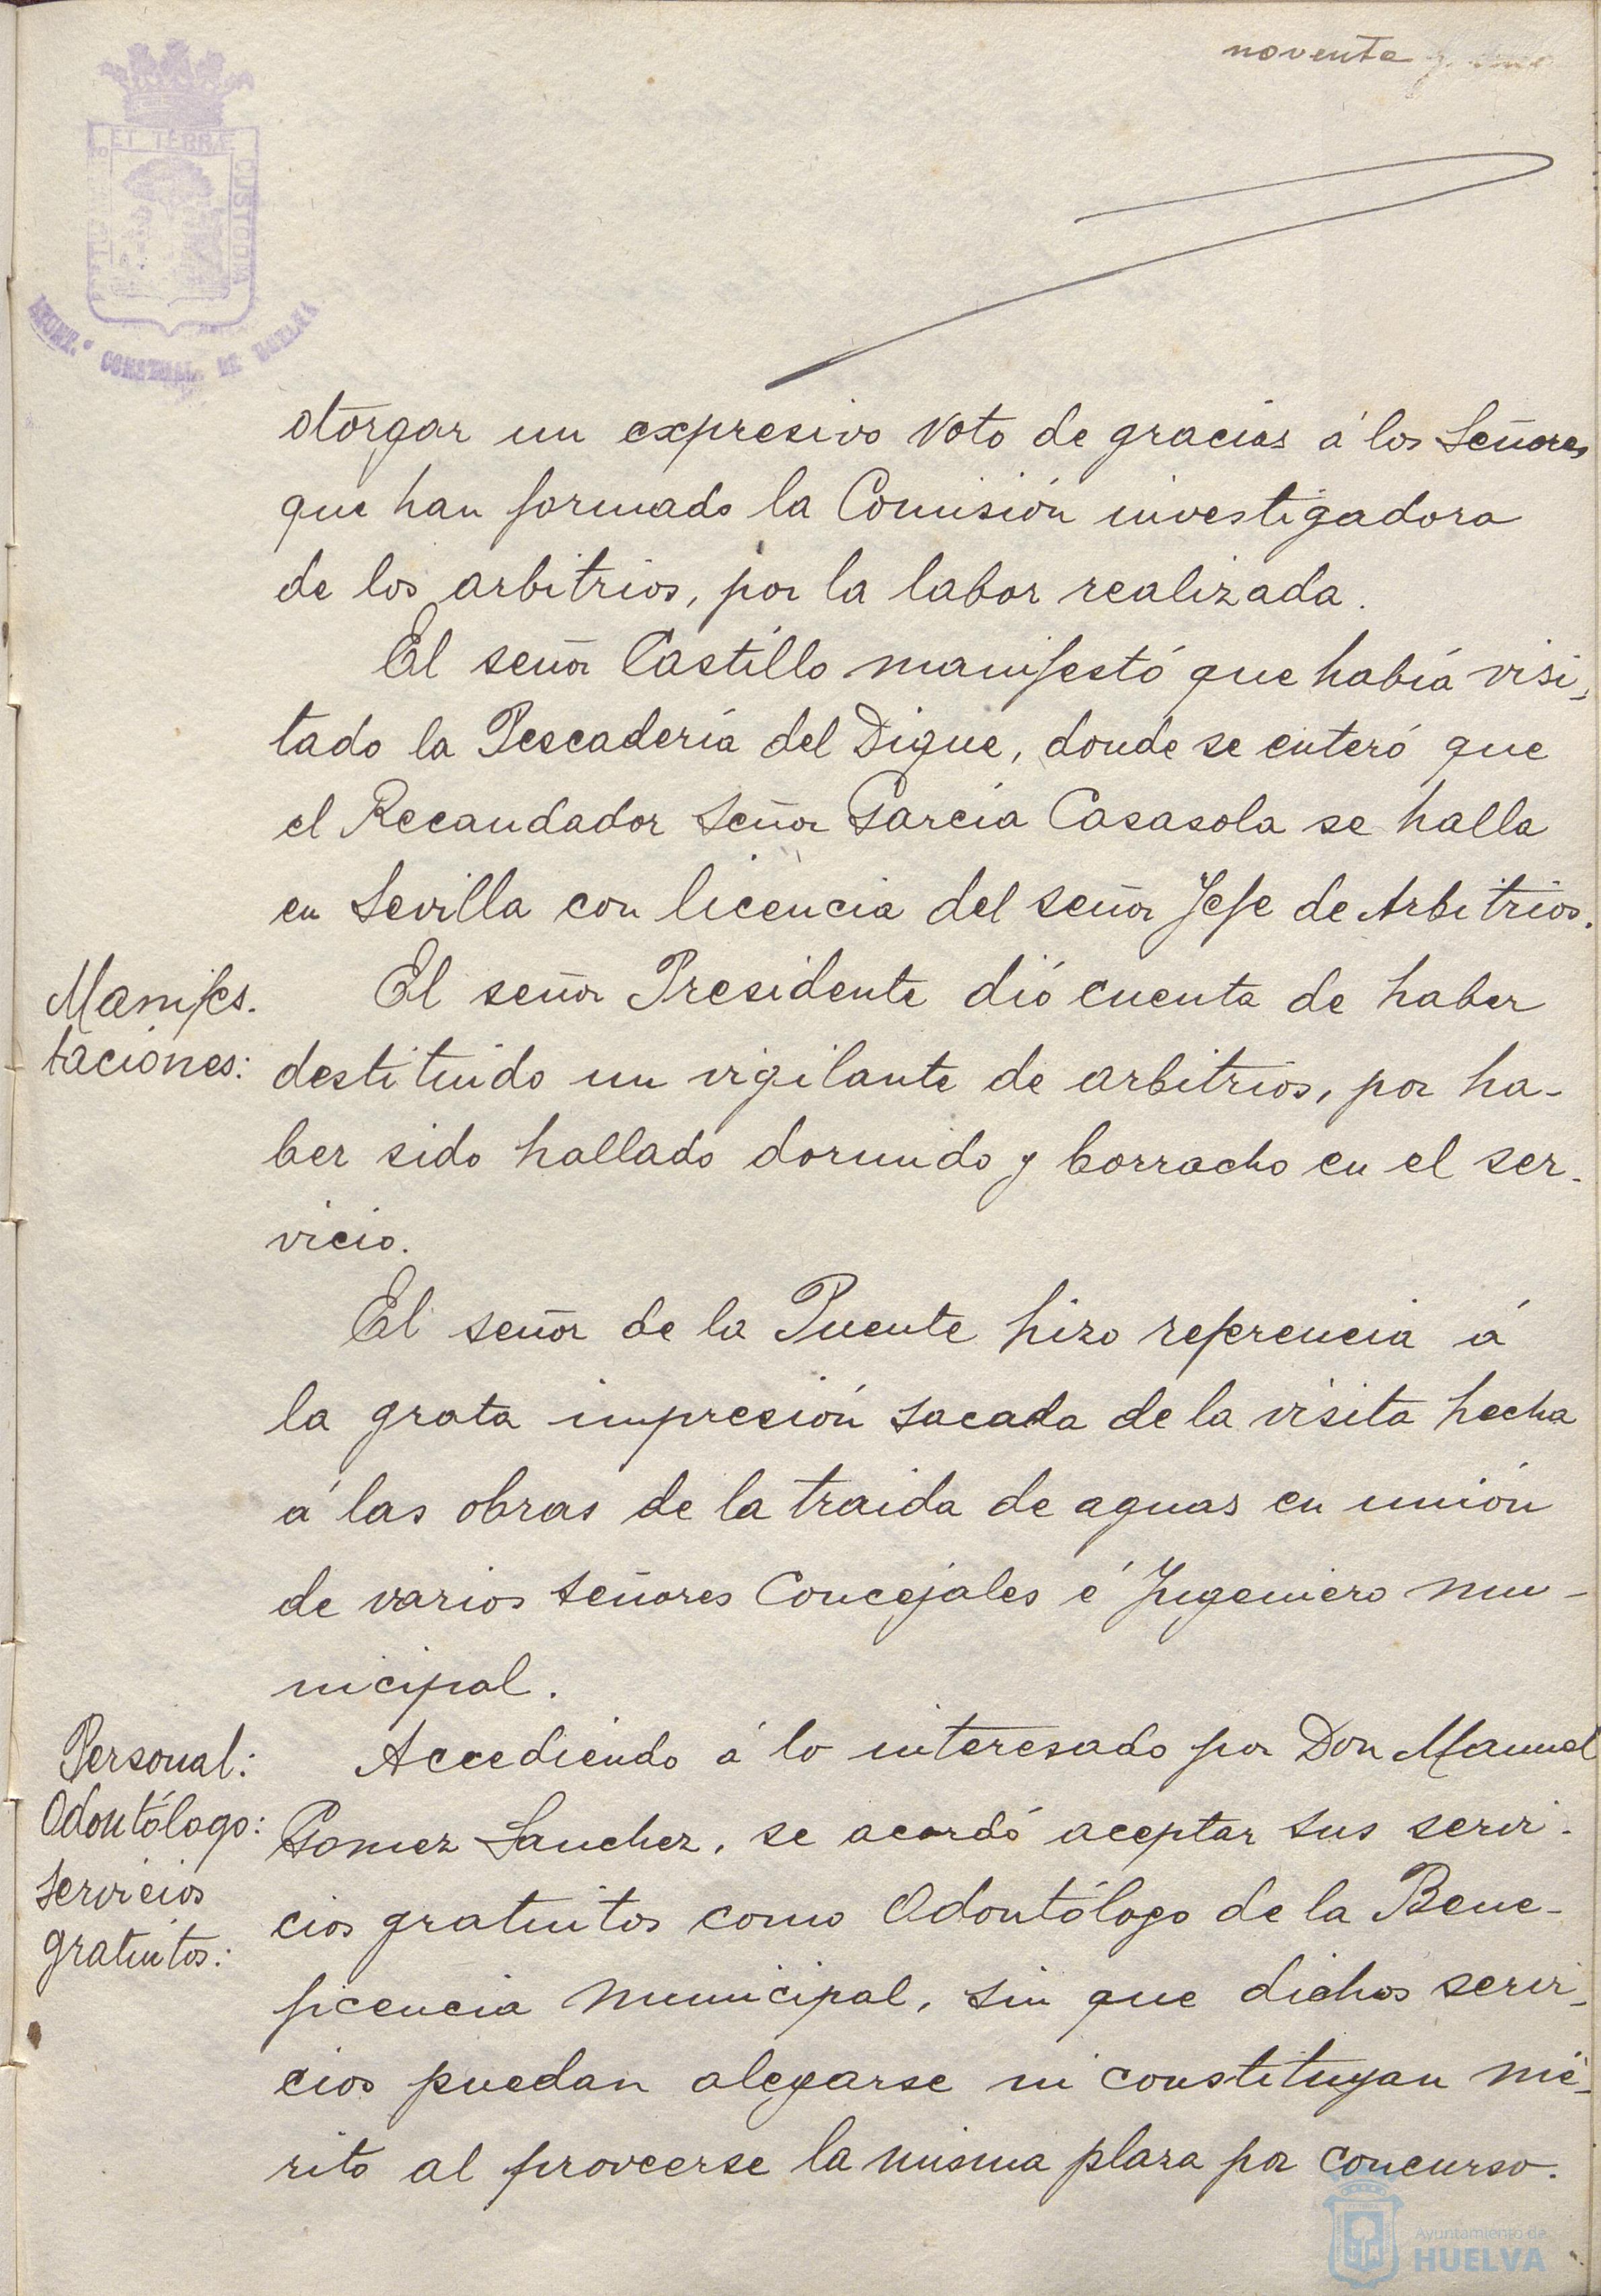 noventa y
ET TERRÆ
CUSTODIA
AYUNT.º CONSTNAL. DE HUELVA
otorgar un expresivo voto de gracias á los Señores
que han formado la Comisión investigadora
de los arbitrios, por la labor realizada.
El señor Castillo manifestó que había visi-
tado la Pescadería del Dique, donde se enteró que
el Recaudador Señor García Casasola se halla
en Sevilla con licencia del señor Jefe de Arbitrios.
Manifes-
taciones:
El señor Presidente dió cuenta de haber
destituido un vigilante de arbitrios, por ha-
ber sido hallado dormido y borracho en el ser-
vicio.
El señor de la Puente hizo referencia á
la grata impresión sacada de la visita hecha
á las obras de la traida de aguas en unión
de varios señores Concejales é Ingeniero mu-
nicipal.
Personal:
Odontólogo:
Servicios
gratuitos:
Accediendo á lo interesado por Don Manuel
Gomez Sanchez, se acordó aceptar sus servi-
cios gratuitos como Odontólogo de la Bene-
ficencia Municipal, sin que dichos servi-
cios puedan alegarse ni constituyan mé-
rito al proveerse la misma plaza por concurso.
Ayuntamiento de
HUELVA